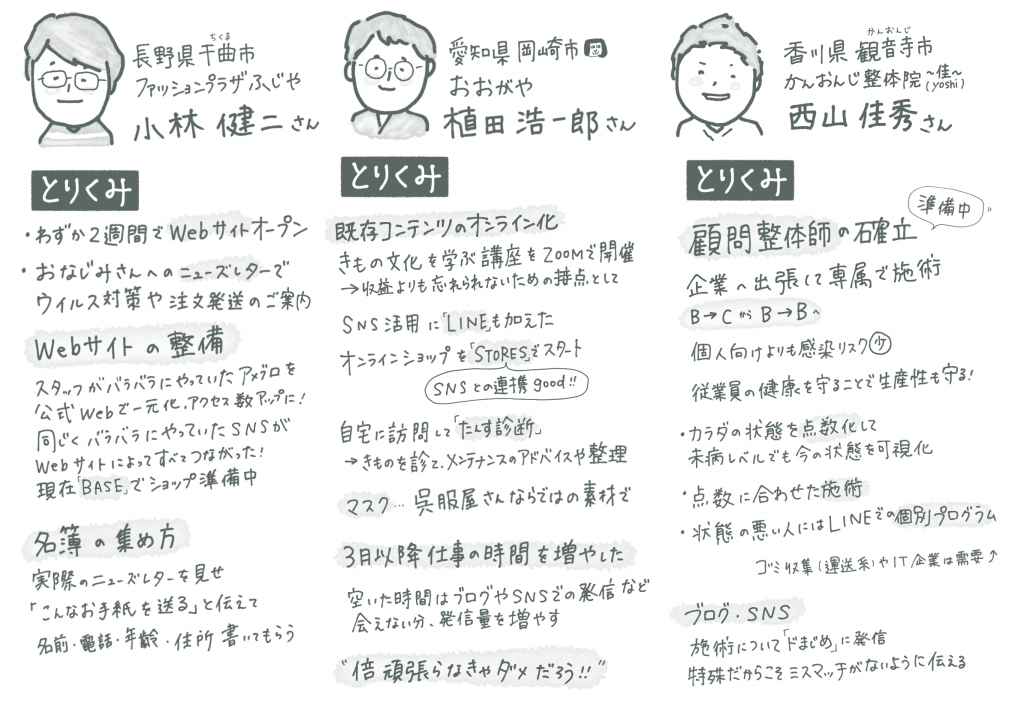 ちくま
長野県 千曲市
ファッションプラザふじや
小林 健二さん
とりくみ
・わずか2週間でWebサイトオープン
・おなじみさんへのニューズレターで
ウイルス対策や注文発送のご案内
Webサイトの整備
スタッフがバラバラにやっていたアメブロを
公式Webで一元化、アクセス数アップに!
同じくバラバラにやっていたSNSが
Webサイトによってすべてつながった!
現在「BASE」でショップ準備中
名簿の集め方
実際のニューズレターを見せ
「こんなお手紙を送る」と伝えて
名前・電話・年齢・住所 書いてもらう
愛知県 岡崎市
おおがや
植田 浩一郎さん
とりくみ
既存コンテンツのオンライン化
きもの文化を学ぶ講座をZOOMで開催
→収益よりも忘れられないための接点として
SNS活用に「LINE」も加えた
オンラインショップを「STORES」でスタート
SNSとの連携good!!
自宅に訪問して「たんす診断」
→きものを診て、メンテナンスのアドバイスや整理
マスク…呉服屋さんならではの素材で
3月以降仕事の時間を増やした
空いた時間はブログやSNSでの発信など
会えない分、発信量を増やす
"倍頑張らなきゃダメだろう!!"
かんおんじ
香川県 観音寺市
かんおんじ整体院 ~佳~
(yoshi)
西山 佳秀さん
とりくみ
準備中
顧問整体師の確立
企業へ出張して専属で施術
B→CからB→Bへ
個人向けよりも感染リスク少
従業員の健康を守ることで生産性も守る!
・カラダの状態を点数化して
未病レベルでも今の状態を可視化
・点数に合わせた施術
・状態の悪い人にはLINEでの個別プログラム
ゴミ収集(運送系)やIT企業は需要↑
ブログ・SNS
施術について「ドまじめ」に発信
特殊だからこそミスマッチがないように伝える